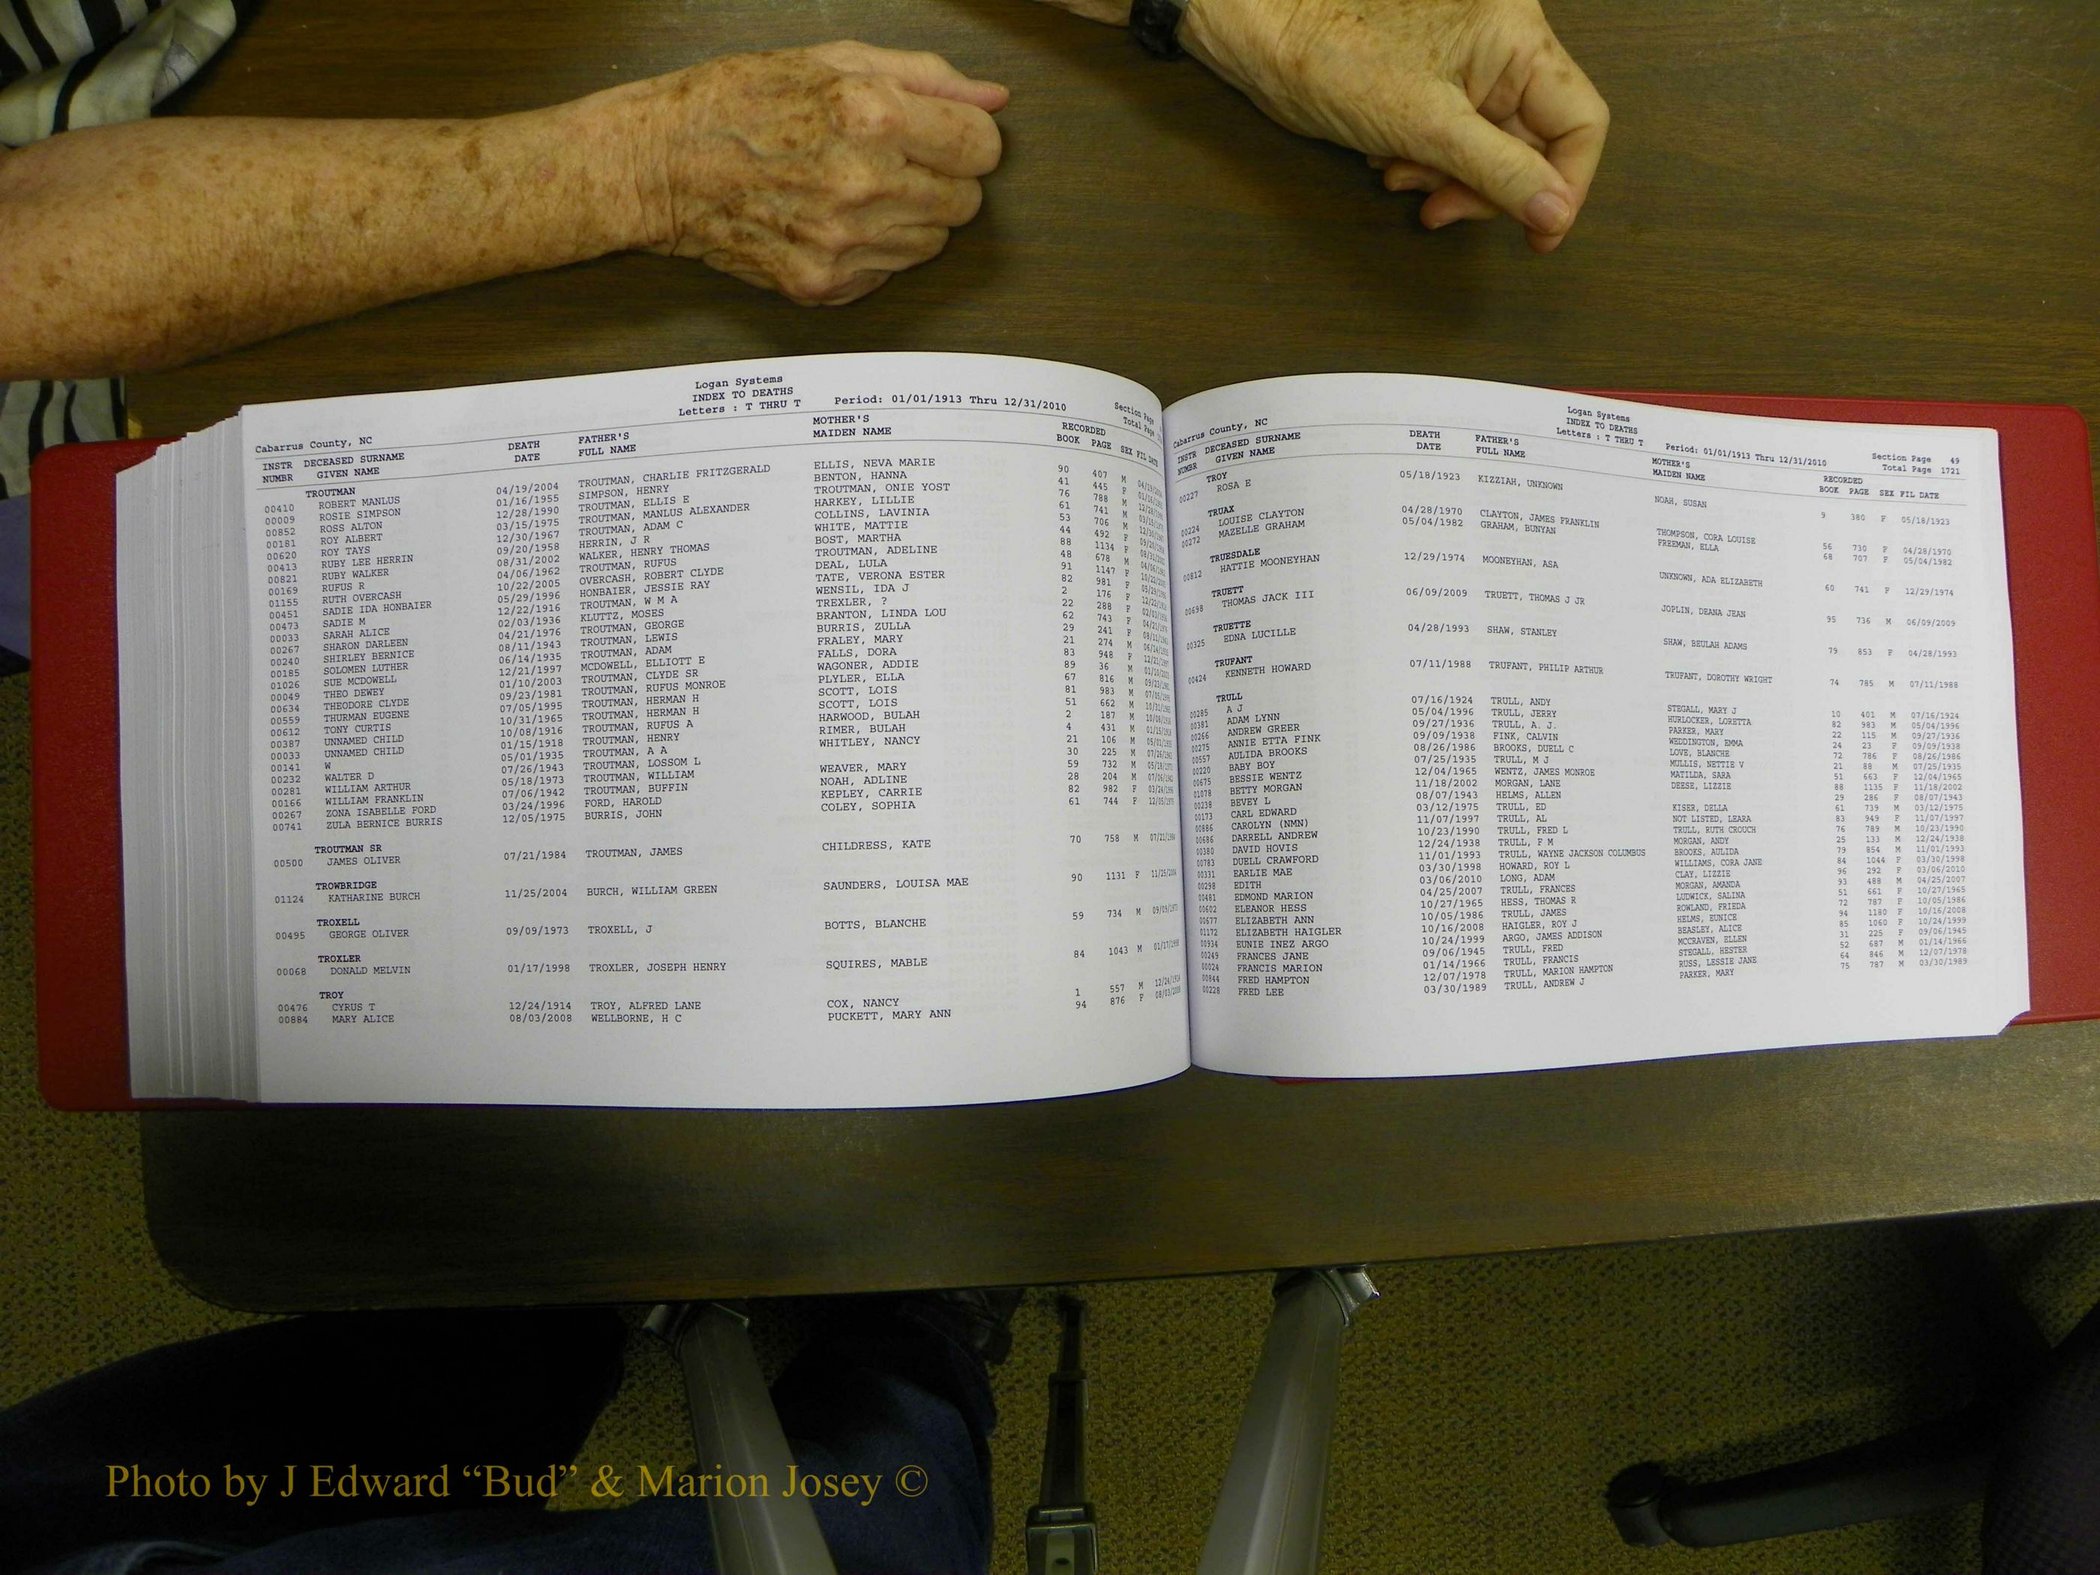 Logan Systems
INDEX TO DEATHS
Cabarrus County, NC Letters : T THRU T Period: 01/01/1913 Thru 12/31/2010 Section Page
Total Page
INSTR DECEASED SURNAME DEATH FATHER'S MOTHER'S RECORDED
NUMBR GIVEN NAME DATE FULL NAME MAIDEN NAME BOOK PAGE SEX FIL DATE
TROUTMAN
00410 ROBERT MANLUS 04/19/2004 TROUTMAN, CHARLIE FRITZGERALD ELLIS, NEVA MARIE 90 407 M 04/19/2004
00009 ROSIE SIMPSON 01/16/1955 SIMPSON, HENRY BENTON, HANNA 41 445 F 01/16/1955
00852 ROSS ALTON 12/28/1990 TROUTMAN, ELLIS E TROUTMAN, ONIE YOST 76 788 M 12/28/1990
00181 ROY ALBERT 03/15/1975 TROUTMAN, MANLUS ALEXANDER HARKEY, LILLIE 61 741 M 03/15/1975
00620 ROY TAYS 12/30/1967 TROUTMAN, ADAM C COLLINS, LAVINIA 53 706 M 12/30/1967
00413 RUBY LEE HERRIN 09/20/1958 HERRIN, J R WHITE, MATTIE 44 492 F 09/20/1958
00821 RUBY WALKER 08/31/2002 WALKER, HENRY THOMAS BOST, MARTHA 88 1134 F 08/31/2002
00169 RUFUS R 04/06/1962 TROUTMAN, RUFUS TROUTMAN, ADELINE 48 678 M 04/06/1962
01155 RUTH OVERCASH 10/22/2005 OVERCASH, ROBERT CLYDE DEAL, LULA 91 1147 F 10/22/2005
00451 SADIE IDA HONBAIER 05/29/1996 HONBAIER, JESSIE RAY TATE, VERONA ESTER 82 981 F 05/29/1996
00473 SADIE M 12/22/1916 TROUTMAN, W M A WENSIL, IDA J 2 176 F 12/22/1916
00033 SARAH ALICE 02/03/1936 KLUTTZ, MOSES TREXLER, ? 22 288 F 02/03/1936
00267 SHARON DARLEEN 04/21/1976 TROUTMAN, GEORGE BRANTON, LINDA LOU 62 743 F 04/21/1976
00240 SHIRLEY BERNICE 08/11/1943 TROUTMAN, LEWIS BURRIS, ZULLA 29 241 F 08/11/1943
00185 SOLOMEN LUTHER 06/14/1935 TROUTMAN, ADAM FRALEY, MARY 21 274 M 06/14/1935
01026 SUE MCDOWELL 12/21/1997 MCDOWELL, ELLIOTT E FALLS, DORA 83 948 F 12/21/1997
00049 THEO DEWEY 01/10/2003 TROUTMAN, CLYDE SR WAGONER, ADDIE 89 36 M 01/10/2003
00634 THEODORE CLYDE 09/23/1981 TROUTMAN, RUFUS MONROE PLYLER, ELLA 67 816 M 09/23/1981
00559 THURMAN EUGENE 07/05/1995 TROUTMAN, HERMAN H SCOTT, LOIS 81 983 M 07/05/1995
00612 TONY CURTIS 10/31/1965 TROUTMAN, HERMAN H SCOTT, LOIS 51 662 M 10/31/1965
00387 UNNAMED CHILD 10/08/1916 TROUTMAN, RUFUS A HARWOOD, BULAH 2 187 M 10/08/1916
00033 UNNAMED CHILD 01/15/1918 TROUTMAN, HENRY RIMER, BULAH 4 431 M 01/15/1918
00141 W 05/01/1935 TROUTMAN, A A WHITLEY, NANCY 21 106 M 05/01/1935
00232 WALTER D 07/26/1943 TROUTMAN, LOSSOM L 30 225 M 07/26/1943
00281 WILLIAM ARTHUR 05/18/1973 TROUTMAN, WILLIAM WEAVER, MARY 59 732 M 05/18/1973
00166 WILLIAM FRANKLIN 07/06/1942 TROUTMAN, BUFFIN NOAH, ADLINE 28 204 M 07/06/1942
00267 ZONA ISABELLE FORD 03/24/1996 FORD, HAROLD KEPLEY, CARRIE 82 982 F 03/24/1996
00741 ZULA BERNICE BURRIS 12/05/1975 BURRIS, JOHN COLEY, SOPHIA 61 744 F 12/05/1975
TROUTMAN SR
00500 JAMES OLIVER 07/21/1984 TROUTMAN, JAMES CHILDRESS, KATE 70 758 M 07/21/1984
TROWBRIDGE
01124 KATHARINE BURCH 11/25/2004 BURCH, WILLIAM GREEN SAUNDERS, LOUISA MAE 90 1131 F 11/25/2004
TROXELL
00495 GEORGE OLIVER 09/09/1973 TROXELL, J BOTTS, BLANCHE 59 734 M 09/09/1973
TROXLER
00068 DONALD MELVIN 01/17/1998 TROXLER, JOSEPH HENRY SQUIRES, MABLE 84 1043 M 01/17/1998
TROY
00476 CYRUS T 12/24/1914 TROY, ALFRED LANE COX, NANCY 1 557 M 12/24/1914
00884 MARY ALICE 08/03/2008 WELLBORNE, H C PUCKETT, MARY ANN 94 876 F 08/03/2008
Logan Systems
INDEX TO DEATHS
Cabarrus County, NC Letters : T THRU T Period: 01/01/1913 Thru 12/31/2010 Section Page 49
Total Page 1721
INSTR DECEASED SURNAME DEATH FATHER'S MOTHER'S RECORDED
NUMBR GIVEN NAME DATE FULL NAME MAIDEN NAME BOOK PAGE SEX FIL DATE
TROY
00227 ROSA E 05/18/1923 KIZZIAH, UNKNOWN NOAH, SUSAN 9 380 F 05/18/1923
TRUAX
00224 LOUISE CLAYTON 04/28/1970 CLAYTON, JAMES FRANKLIN THOMPSON, CORA LOUISE 56 730 F 04/28/1970
00272 MAZELLE GRAHAM 05/04/1982 GRAHAM, BUNYAN FREEMAN, ELLA 68 707 F 05/04/1982
TRUESDALE
00812 HATTIE MOONEYHAN 12/29/1974 MOONEYHAN, ASA UNKNOWN, ADA ELIZABETH 60 741 F 12/29/1974
TRUETT
00698 THOMAS JACK III 06/09/2009 TRUETT, THOMAS J JR JOPLIN, DEANA JEAN 95 736 M 06/09/2009
TRUETTE
00325 EDNA LUCILLE 04/28/1993 SHAW, STANLEY SHAW, BEULAH ADAMS 79 853 F 04/28/1993
TRUFANT
00424 KENNETH HOWARD 07/11/1988 TRUFANT, PHILIP ARTHUR TRUFANT, DOROTHY WRIGHT 74 785 M 07/11/1988
TRULL
00285 A J 07/16/1924 TRULL, ANDY STEGALL, MARY J 10 401 M 07/16/1924
00381 ADAM LYNN 05/04/1996 TRULL, JERRY HURLOCKER, LORETTA 82 983 M 05/04/1996
00266 ANDREW GREER 09/27/1936 TRULL, A. J. PARKER, MARY 22 115 M 09/27/1936
00275 ANNIE ETTA FINK 09/09/1938 FINK, CALVIN WEDDINGTON, EMMA 24 23 F 09/09/1938
00557 AULIDA BROOKS 08/26/1986 BROOKS, DUELL C LOVE, BLANCHE 72 786 F 08/26/1986
00220 BABY BOY 07/25/1935 TRULL, M J MULLIS, NETTIE V 21 88 M 07/25/1935
00675 BESSIE WENTZ 12/04/1965 WENTZ, JAMES MONROE MATILDA, SARA 51 663 F 12/04/1965
01078 BETTY MORGAN 11/18/2002 MORGAN, LANE DEESE, LIZZIE 88 1135 F 11/18/2002
00238 BEVEY L 08/07/1943 HELMS, ALLEN 29 286 F 08/07/1943
00173 CARL EDWARD 03/12/1975 TRULL, ED KISER, DELLA 61 739 M 03/12/1975
00886 CAROLYN (NMN) 11/07/1997 TRULL, AL NOT LISTED, LEARA 83 949 F 11/07/1997
00686 DARRELL ANDREW 10/23/1990 TRULL, FRED L TRULL, RUTH CROUCH 76 789 M 10/23/1990
00380 DAVID HOVIS 12/24/1938 TRULL, F M MORGAN, ANDY 25 133 M 12/24/1938
00783 DUELL CRAWFORD 11/01/1993 TRULL, WAYNE JACKSON COLUMBUS BROOKS, AULIDA 79 854 M 11/01/1993
00331 EARLIE MAE 03/30/1998 HOWARD, ROY L WILLIAMS, CORA JANE 84 1044 F 03/30/1998
00298 EDITH 03/06/2010 LONG, ADAM CLAY, LIZZIE 96 292 F 03/06/2010
00481 EDMOND MARION 04/25/2007 TRULL, FRANCES MORGAN, AMANDA 93 488 M 04/25/2007
00602 ELEANOR HESS 10/27/1965 HESS, THOMAS R LUDWICK, SALINA 51 661 F 10/27/1965
00677 ELIZABETH ANN 10/05/1986 TRULL, JAMES ROWLAND, FRIEDA 72 787 F 10/05/1986
01172 ELIZABETH HAIGLER 10/16/2008 HAIGLER, ROY J HELMS, EUNICE 94 1180 F 10/16/2008
00934 EUNIE INEZ ARGO 10/24/1999 ARGO, JAMES ADDISON BEASLEY, ALICE 85 1060 F 10/24/1999
00249 FRANCES JANE 09/06/1945 TRULL, FRED MCCRAVEN, ELLEN 31 225 F 09/06/1945
00024 FRANCIS MARION 01/14/1966 TRULL, FRANCIS STEGALL, HESTER 52 687 M 01/14/1966
00844 FRED HAMPTON 12/07/1978 TRULL, MARION HAMPTON RUSS, LESSIE JANE 64 846 M 12/07/1978
00228 FRED LEE 03/30/1989 TRULL, ANDREW J PARKER, MARY 75 787 M 03/30/1989
Photo by J Edward “Bud” & Marion Josey ©